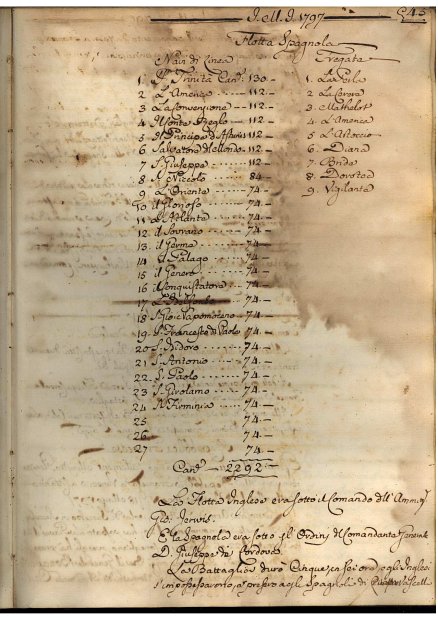 1797
Flotta Spagnola
Navi di Linea Fregate
1. S. Trinità Can. 130.
2. L'Amenza 112.
3. La Convenzione 112.
4. Il Conte Reglo 112.
5. Il Principe d'Asturias 112.
6. Salvatore del Mondo 112.
7. S. Giuseppe 112.
8. S. Niccolò 84
9. L'Oriente 74.
10. il Glorioso 74.
11. L'Atlanta 74.
12. il Sovrano 74.
13. il Ferma 74.
14. il Palago 74.
15. il Genere 74.
16. il Conquistatore 74.
17. 74.
18. 74.
19. S. Francesco di Paolo 74.
20. S. Isidoro 74.
21. S. Antonio 74.
22. S. Paolo 74.
23. S. Girolamo 74.
24. S. Firminia 74.
25. 74.
26. 74.
27 74.
Can. 2292.
1. La
2. La Cerere
3. Mathelot
4. L'America
5. L'Astoccio
6. Diana
7. Brida
8. Dorotea
9. Vigilante
La Flotta Inglese era sotto il Comando dell'
Gio. Jerwis.
E la Spagnola era sotto gl'Ordini del Comandante Generale
D. Giuseppe de Cordova.
La Battaglia durò Cinque in Sei ore, e gl'Inglesi
s'impossessarono, a presero agl Spagnoli di Vascelli